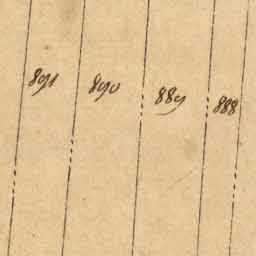 891 890 889 888